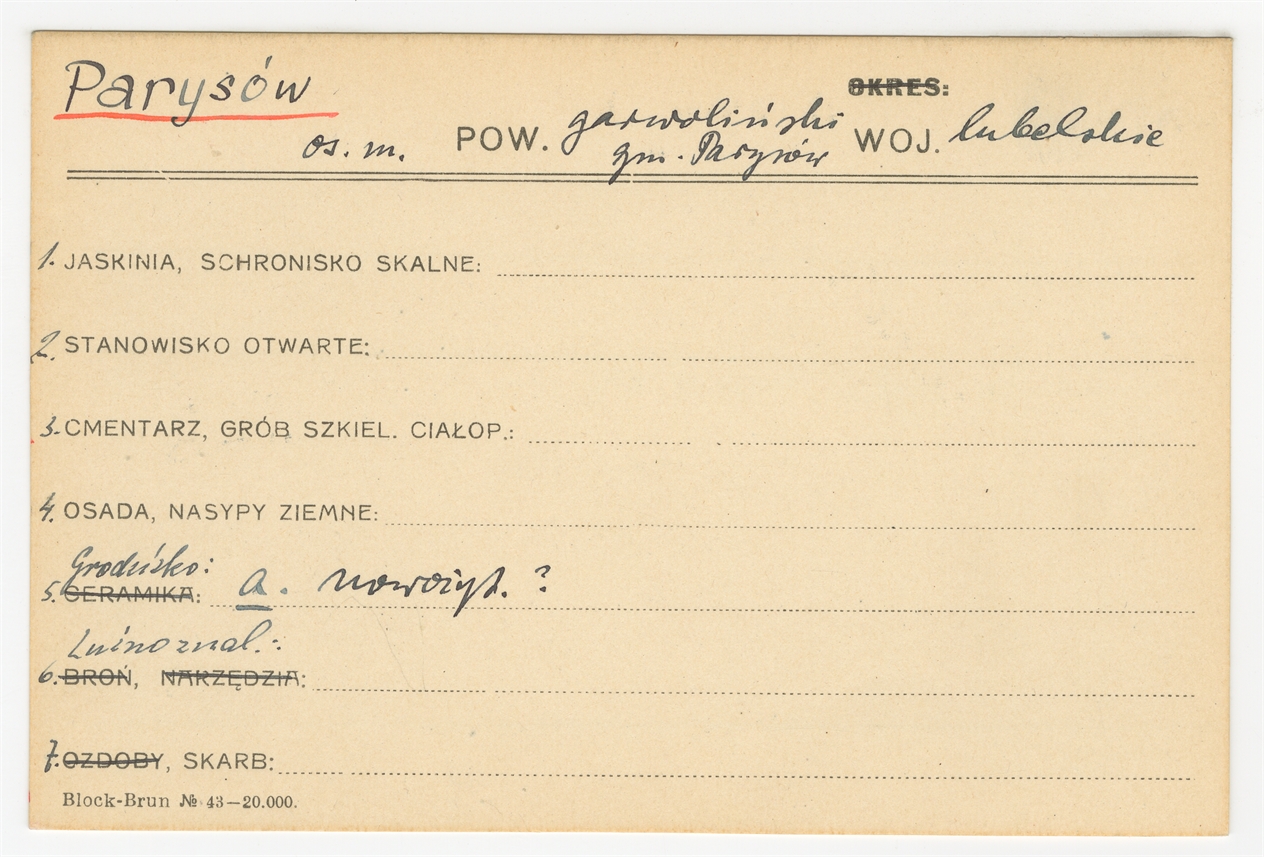 Parysów
OKRES:
os. m. POW. garwoliński WOJ. lubelskie
gm. Parysów
1. JASKINIA, SCHRONISKO SKALNE:
2. STANOWISKO OTWARTE:
3. CMENTARZ, GRÓB SZKIEL. CIAŁOP.:
4. OSADA, NASYPY ZIEMNE:
Grodzisko:
5. CERAMIKA: a. nowożyt. ?
Luźno znal.:
6. BROŃ, NARZĘDZIA:
7. OZDOBY, SKARB:
Block-Brun № 43—20.000.